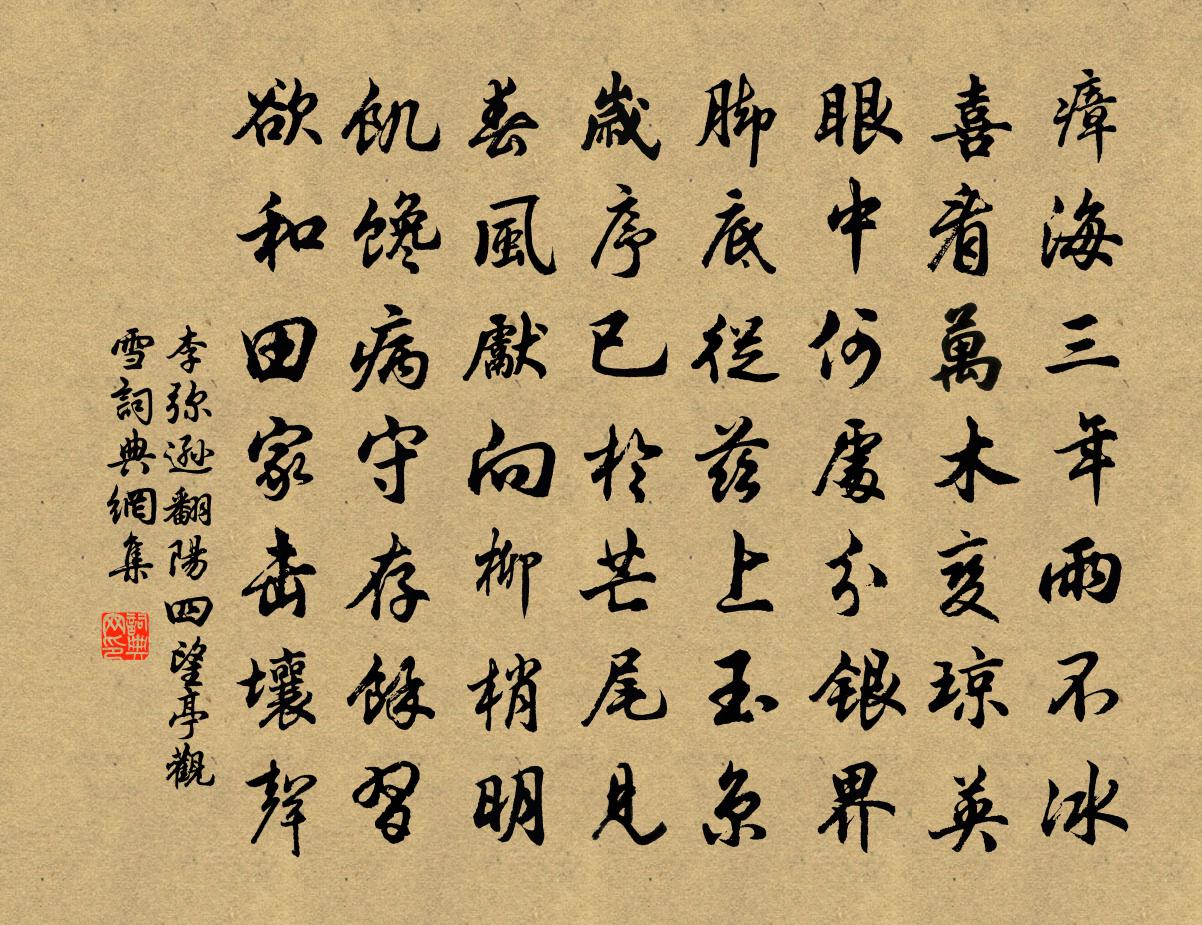 瘴海三年雨不冰
喜看萬木变琼英
眼中何處分銀界
脚底從兹上玉京
歳序已於芒尾見
春風獻向柳梢明
飢馋病守存餘習
欲和田家击壤聲
李弥遜翻陽四望亭觀
雪詞典網集
詞典網印